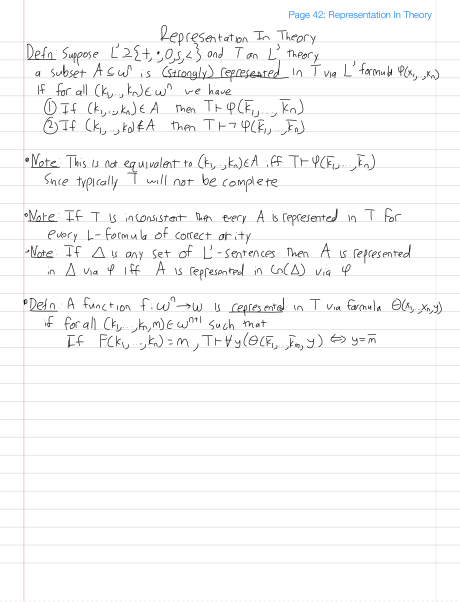 Page 42: Representation In Theory
Representation In Theory
Defn: Suppose L' ⊇ {+, ·, 0, s, <} and T an L' theory
a subset A ⊆ ω^n is (strongly) represented in T via L' formula φ(x₁,...,xₙ)
If for all (k₁,...,kₙ) ∈ ω^n we have
① If (k₁,...,kₙ) ∈ A then T ⊢ φ(k̄₁,...,k̄ₙ)
② If (k₁,...,kₙ) ∉ A then T ⊢ ¬φ(k̄₁,...,k̄ₙ)
• Note: This is not equivalent to (k₁,...,kₙ) ∈ A iff T ⊢ φ(k̄₁,...,k̄ₙ)
Since typically T will not be complete
• Note: If T is inconsistent then every A is represented in T for
every L-formula of correct arity
- Note: If Δ is any set of L'-sentences then A is represented
in Δ via φ iff A is represented in Cn(Δ) via φ
• Defn: A function f: ω^n → ω is represented in T via formula Θ(x₁,...,xₙ,y)
if for all (k₁,...,kₙ,m) ∈ ω^{n+1} such that
If F(k₁,...,kₙ) = m, T ⊢ ∀y(Θ(k̄₁,...,k̄ₘ,y) ⇔ y = m̄